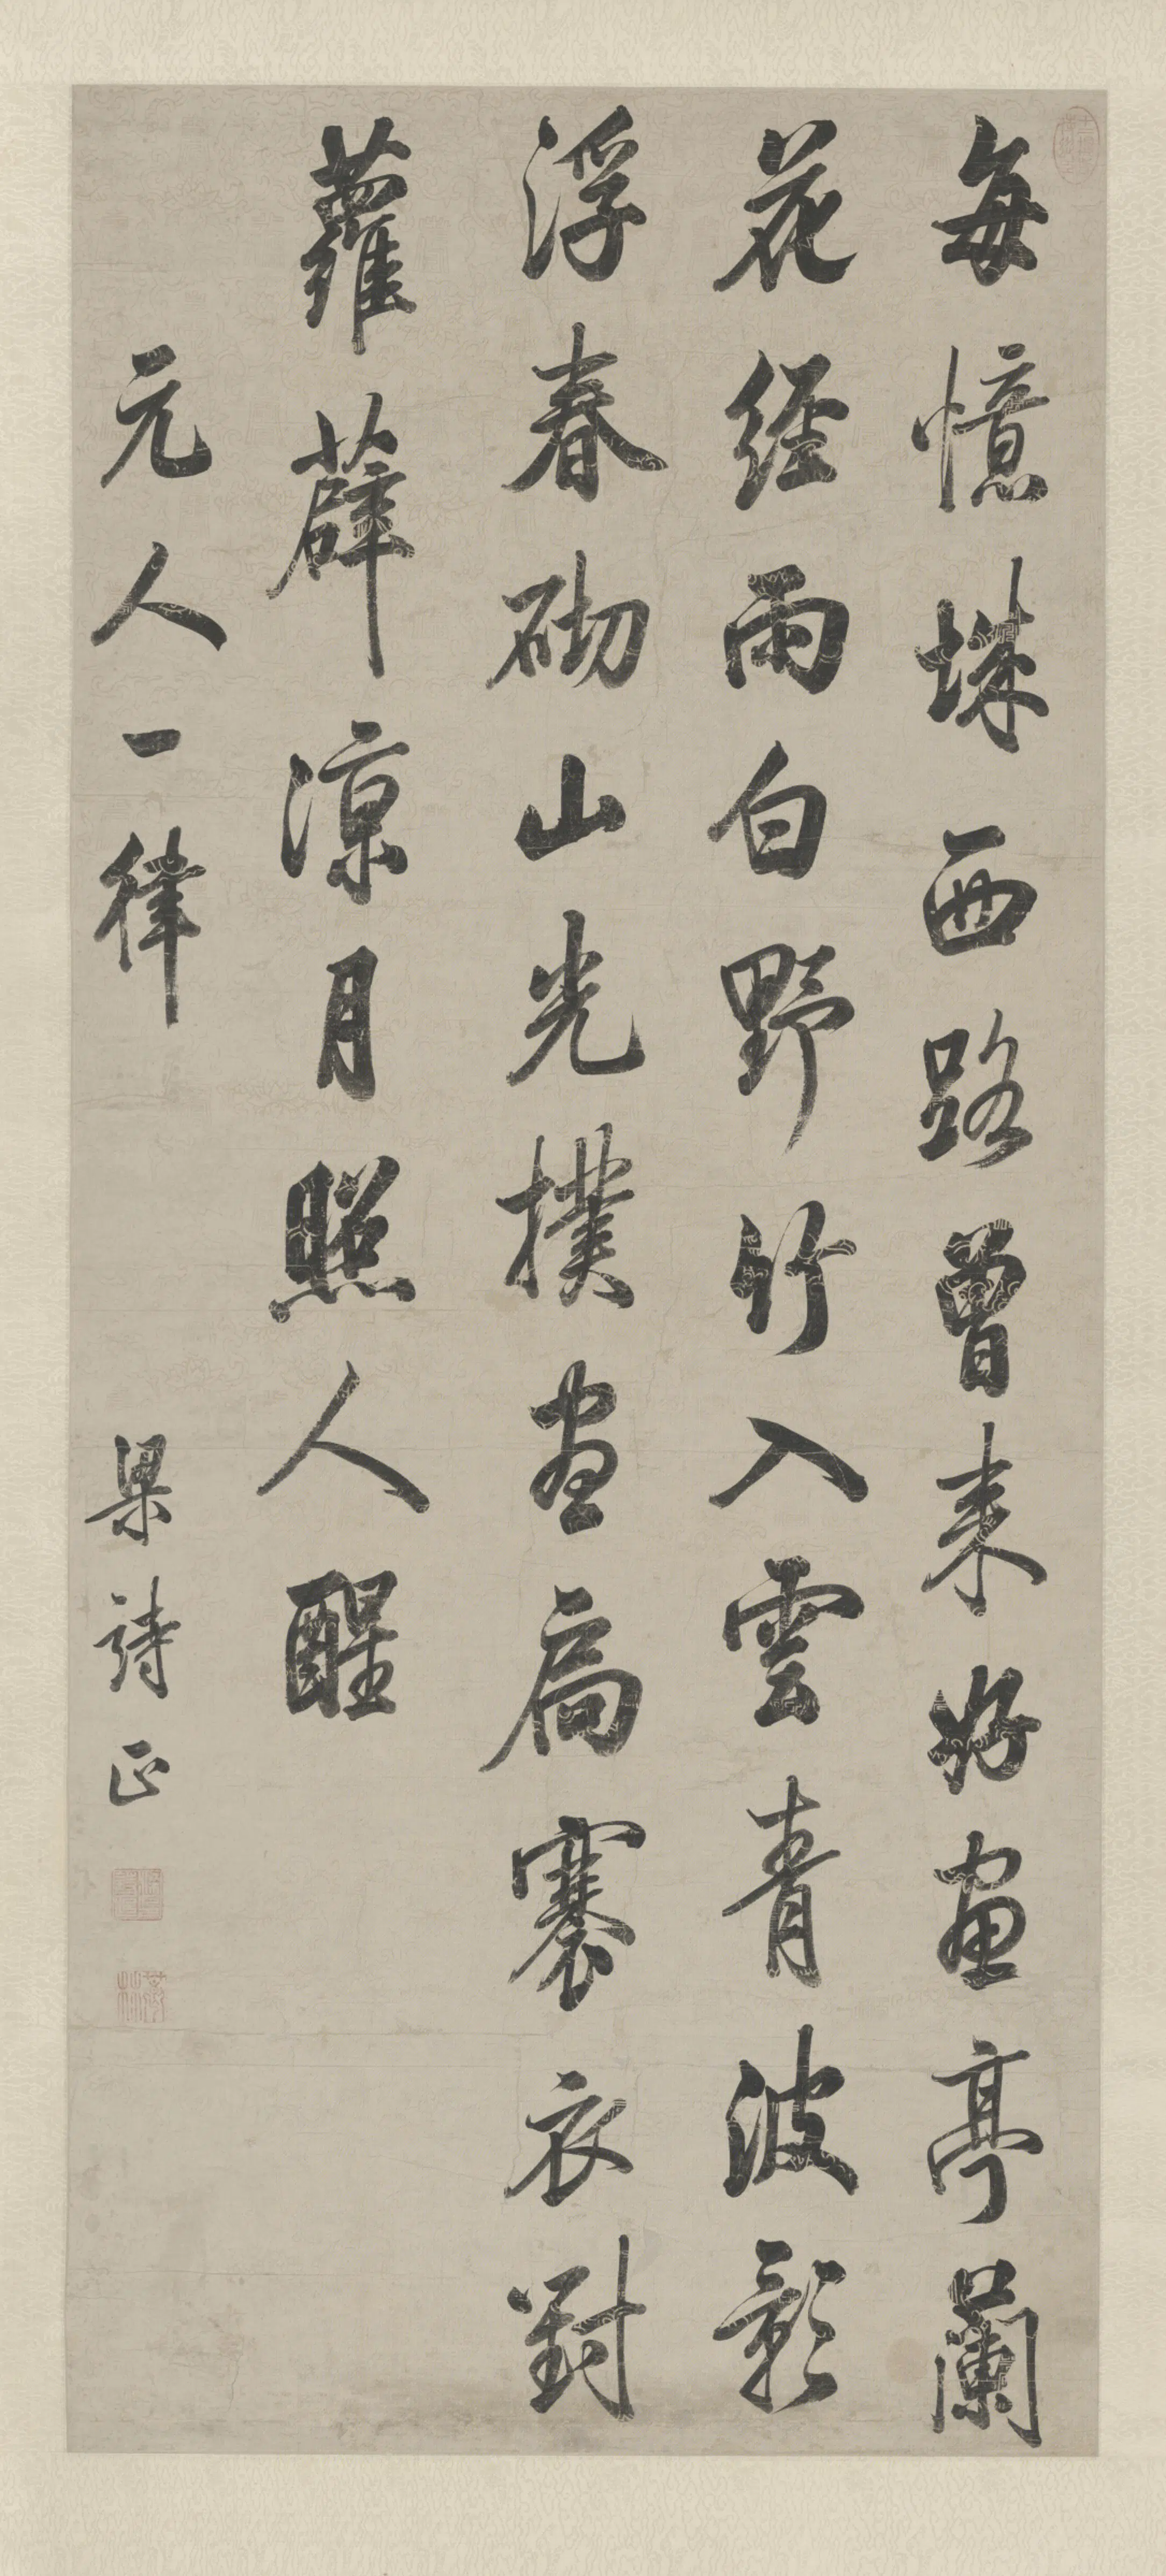 每憶城西路曾來好畫亭闌
花經雨白野竹入雲青波影
浮春砌山光撲畫扃褰衣對
蘿薜涼月照人醒
元人一律
梁詩正